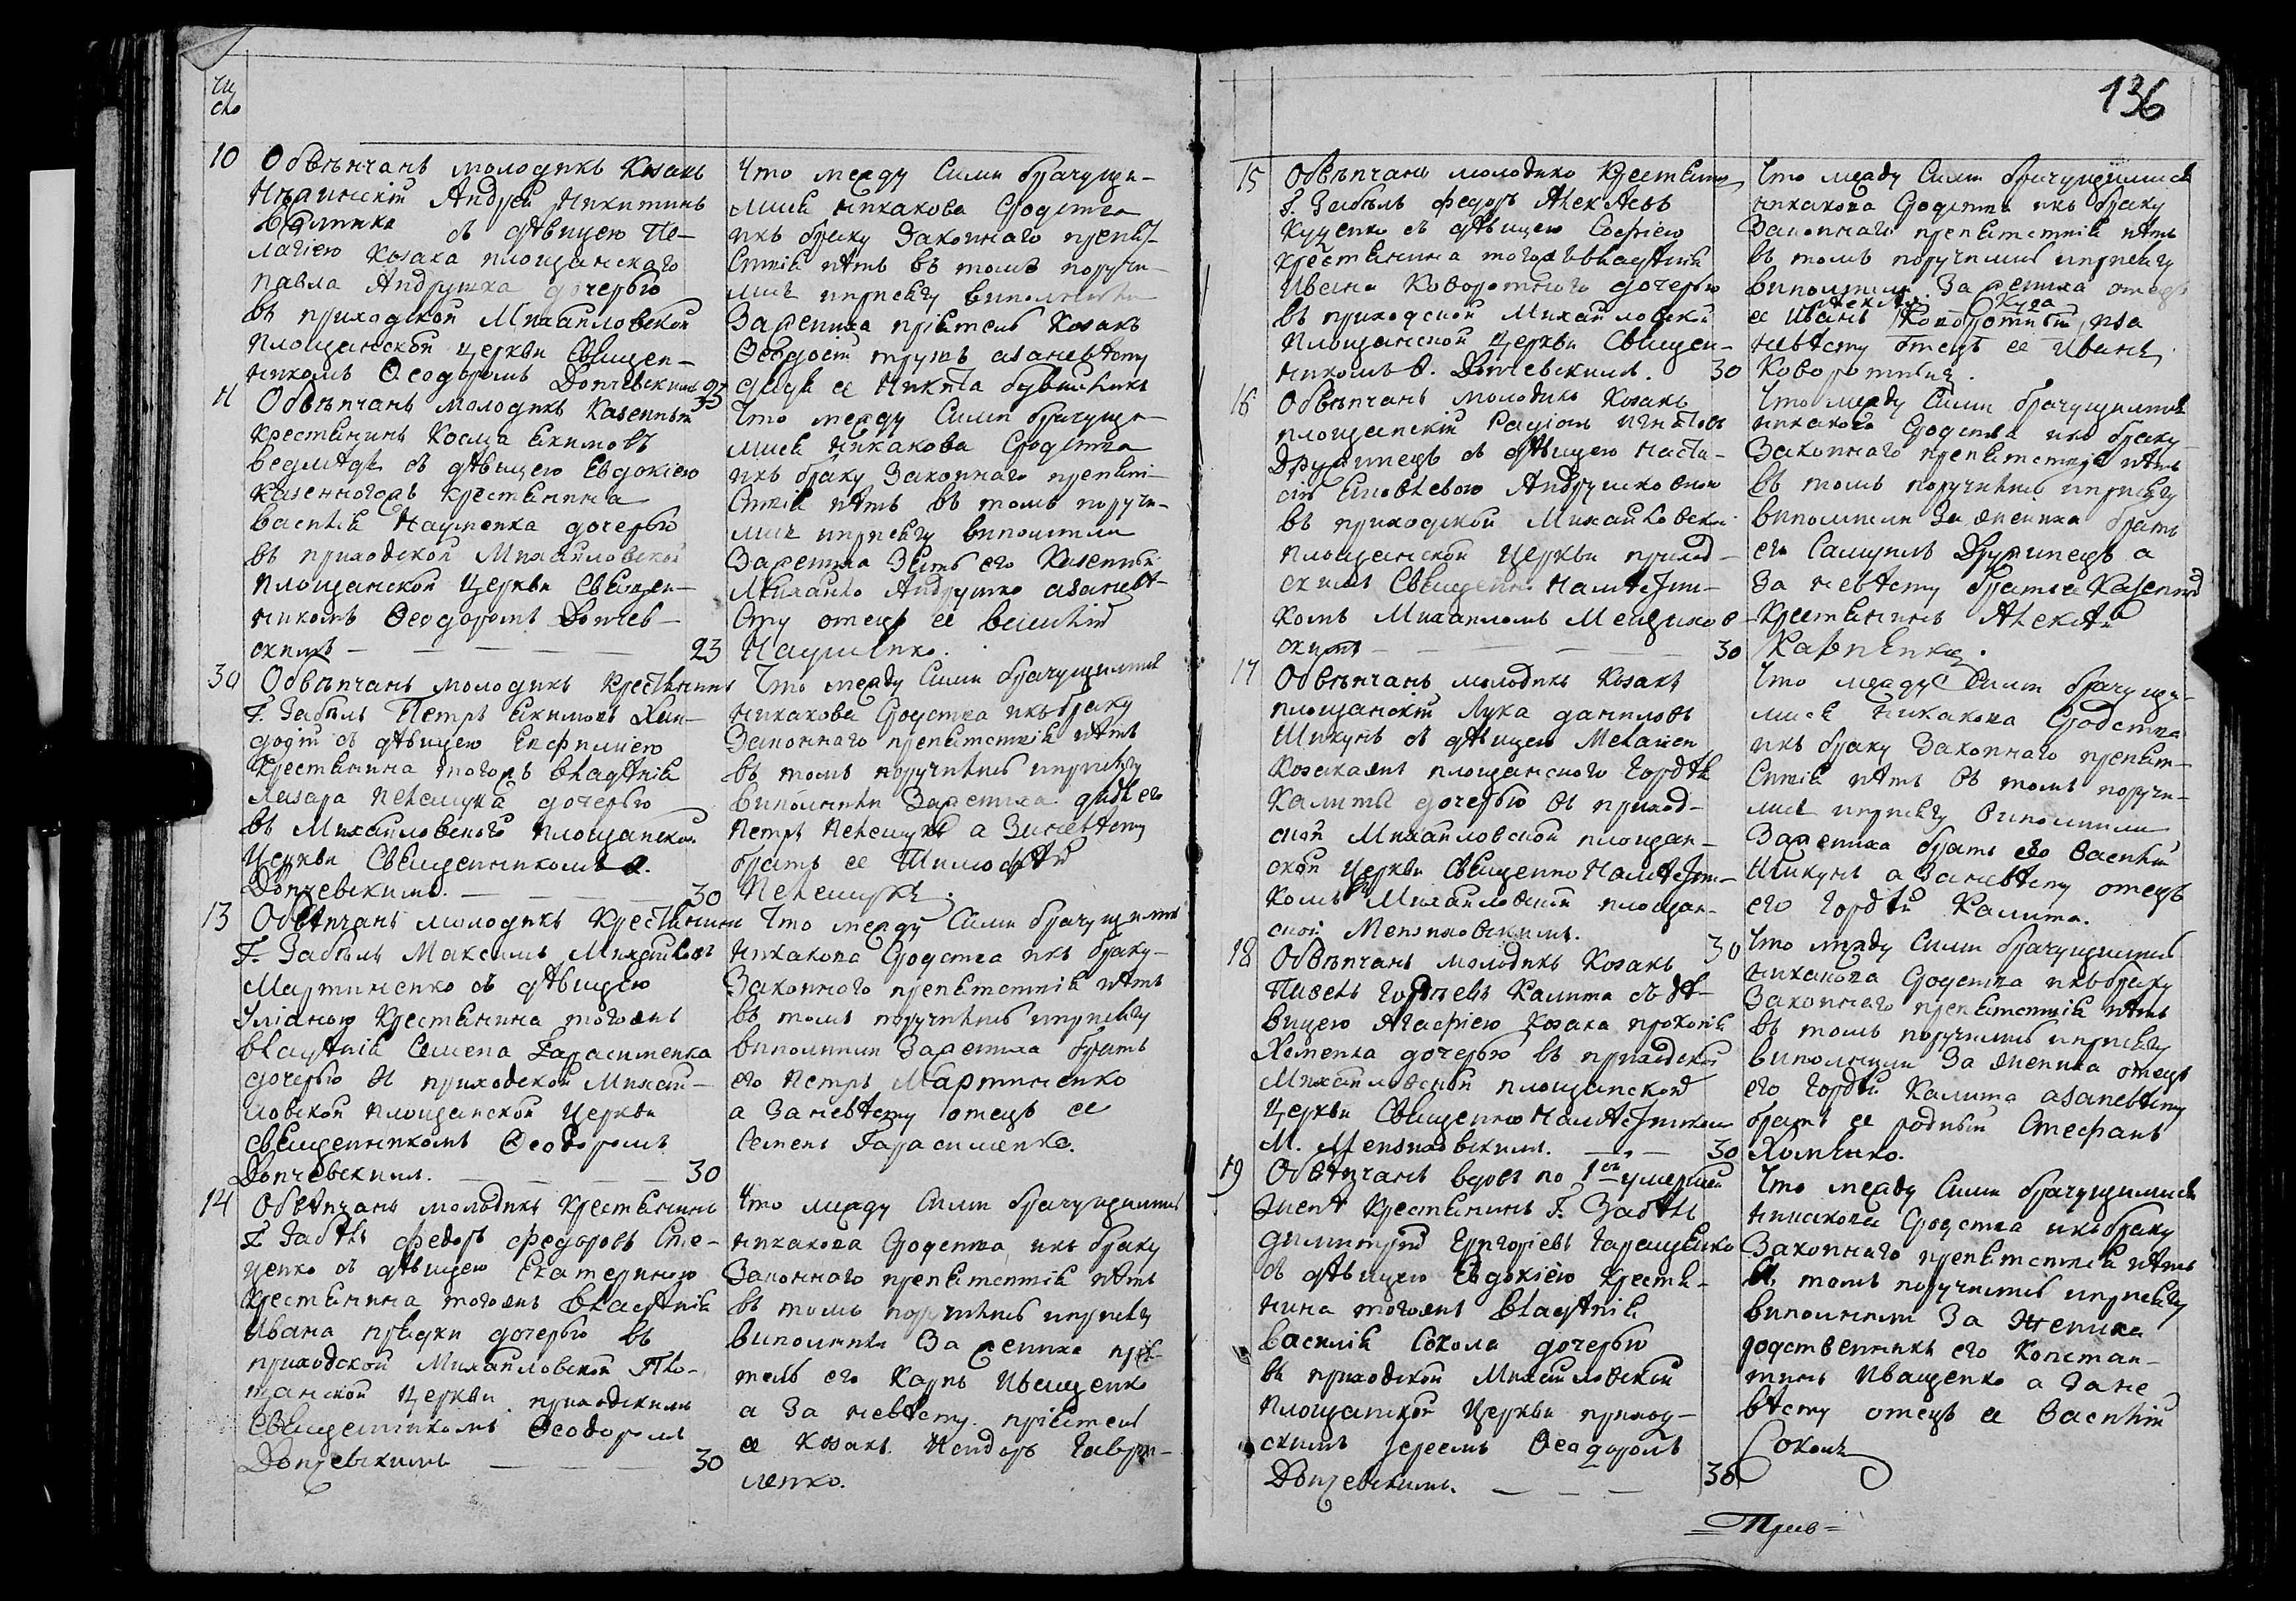 Чи
сло
10 Обвѣнчанъ молодикъ Козакъ
Нѣжинскій Андрей Никитинъ
съ дѣвицею Пе-
лагіею Козака площанскаго
Павла Андрушка дочерью
въ приходской Михайловской
Площанской Церкви Священ-
никомъ Ѳеодоромъ Допчевскимъ 23
Что между Сими брачущи-
мися никакова Сродства
икъ браку Законнаго препят-
ствія нѣтъ въ томъ поручи-
лись иприсягу
Зажениха пріятель Козакъ
азаневѣсту
дядя ея Никита
11 Обвѣнчанъ молодикъ Казенный
крестянинъ Косма Екимовъ
Ведмѣдь съ дѣвицею Евдокіею
Казенногожъ крестянина
Василія Науменка дочерью
въ приходской Михайловской
площанской Церкви Священ-
никомъ Ѳеодоромъ Допчев-
скимъ 23
Что между Сими брачущи-
мися никакова Сродства
икъ браку Законнаго препят-
ствія нѣтъ въ томъ поручи-
лись иприсягу виполнили
Зажениха Зять его Казенный
Михайло Андрушко азаневѣ-
сту отецъ ея Василій
Науменко.
30 Обвѣнчанъ молодикъ крестянинъ
Г. Забѣлъ Петръ Екимовъ
съ дѣвицею Евфиміею
Крестянина тогожъ владѣнія
Лазара Пелешука дочерью
въ Михайловского площанской
Церкви Священникомъ Ѳ.
Допчевскимъ. 30
Что между Сими брачущимись
никакова Сродства икъ браку
Законнаго препятствія нѣтъ
въ томъ поручились иприсягу
виполнили Зажениха дядя его
Петръ Пелешукъ а Заневѣсту
братъ ея Тимофѣй
Пелешукъ.
13 Обвѣнчанъ молодикъ Крестянинъ
Г. Забѣлъ Максимъ Михайловъ
Мартиненко съ дѣвицею
Уліаною Крестянина тогожъ
владѣнія Семена Гарасименка
дочерью въ приходской Михай-
ловской площанской Церкви
священникомъ Ѳеодоромъ
Допчевскимъ. 30
Что между Сими брачущимись
никакова Сродства икъ браку
Законного препятствія нѣтъ
въ томъ поручились иприсягу
виполнили Зажениха братъ
его Петръ Мартиненко
а Заневѣсту отецъ ея
Семенъ Гарасименко.
14 Обвѣнчанъ молодикъ Крестянинъ
Г. Забѣлъ Федоръ Федоровъ Сте-
ценко съ дѣвицею Екатериною
Крестянина тогожъ владѣнія
Ивана Прядки дочерью въ
приходской Михайловской Пло-
щанской Церкви приходскимъ
Священникомъ Ѳеодоромъ
Допчевскимъ 30
Что между Сими брачущимись
никакова Сродства икъ браку
Законнаго препятствія нѣтъ
въ томъ поручились иприсягу
виполнили За жениха прія-
тель его Карпъ Иващенко
а За невѣсту пріятель
ея Козакъ Гаври-
ленко.
136
15 Обвѣнчанъ молодикъ Крестянинъ
Г. Забѣлъ Федоръ Алексѣевъ
Куценко съ дѣвицею Софіею
крестянина тогожъ владѣнія
Ивана Коворотного дочерью
въ приходской Михайловской
Площанской Церкви Священ-
никомъ Ѳ. Допчевскимъ. 30
Что между Сими брачущимися
никакова Сродства икъ браку
Законнаго препятствія нѣтъ
въ томъ поручились иприсягу
виполнили За жениха отецъ
ея Иванъ Коворотный, иза
невѣсту отецъ ея Иванъ
Коворотный.
16 Обвѣнчанъ молодикъ Козакъ
площанскій Радіонъ Игнатовъ
Дружинецъ съ дѣвицею Наста-
сіею Андрушковною
въ приходской Михайловской
площанской Церкви приход-
скимъ Священно Намѣсни-
комъ Михаиломъ
скимъ 30
Что между Сими брачущимись
никакова Сродства икъ браку
Законнаго препятствія нѣтъ
въ томъ поручились иприсягу
виполнили За жениха братъ
его Самуилъ Дружинецъ а
За невѣсту братъ ея Казенный
Крестянинъ Алексѣй
Карпенко.
17 Обвѣнчанъ молодикъ Козакъ
площанскій Лука Даниловъ
Шикунъ съ дѣвицею Меланіею
Козака площанского Гордѣя
Калиты дочерью въ приход-
ской Михайловской площан-
ской Церкви Священно Намѣсни-
комъ Михайловской площан-
ской 30
Что между Сими брачущи-
мись никакова Сродства
икъ браку Законнаго препят-
ствія нѣтъ въ томъ поручи-
лись иприсягу виполнили
Зажениха братъ его Василій
Шикунъ а Заневѣсту отецъ
его Гордѣй Калита.
18 Обвѣнчанъ молодикъ Козакъ
Гордѣевъ Калита съ дѣ-
вицею Агафіею Козака Прокопія
Хоменка дочерью въ приходской
Михайловской площанской
Церкви Священно Намѣсникомъ
М. 30
Что между Сими брачущимись
никакова Сродства икъ браку
Законнаго препятствія нѣтъ
въ томъ поручились иприсягу
виполнили За жениха отецъ
его Гордѣй Калита азаневѣсту
братъ ея родный Стефанъ
Хоменко.
19 Обвѣнчанъ вдовъ по 1ой умершей
женѣ Крестянинъ Г. Забѣлъ
Димитрій Григоріевъ Гаращенко
съ дѣвицею Евдокіею крестя-
нина тогожъ владѣнія
Василія Сокола дочерью
въ приходской Михайловской
Площанской Церкви приход-
скимъ Іереемъ Ѳеодоромъ
Допчевскимъ. 30
Что между Сими брачущимися
никакова Сродства икъ браку
Законнаго препятствія нѣтъ
въ томъ поручились иприсягу
виполнили За жениха
родственникъ его Констан-
тинъ Иващенко а Зане
вѣсту отецъ ея Василій
Соколъ